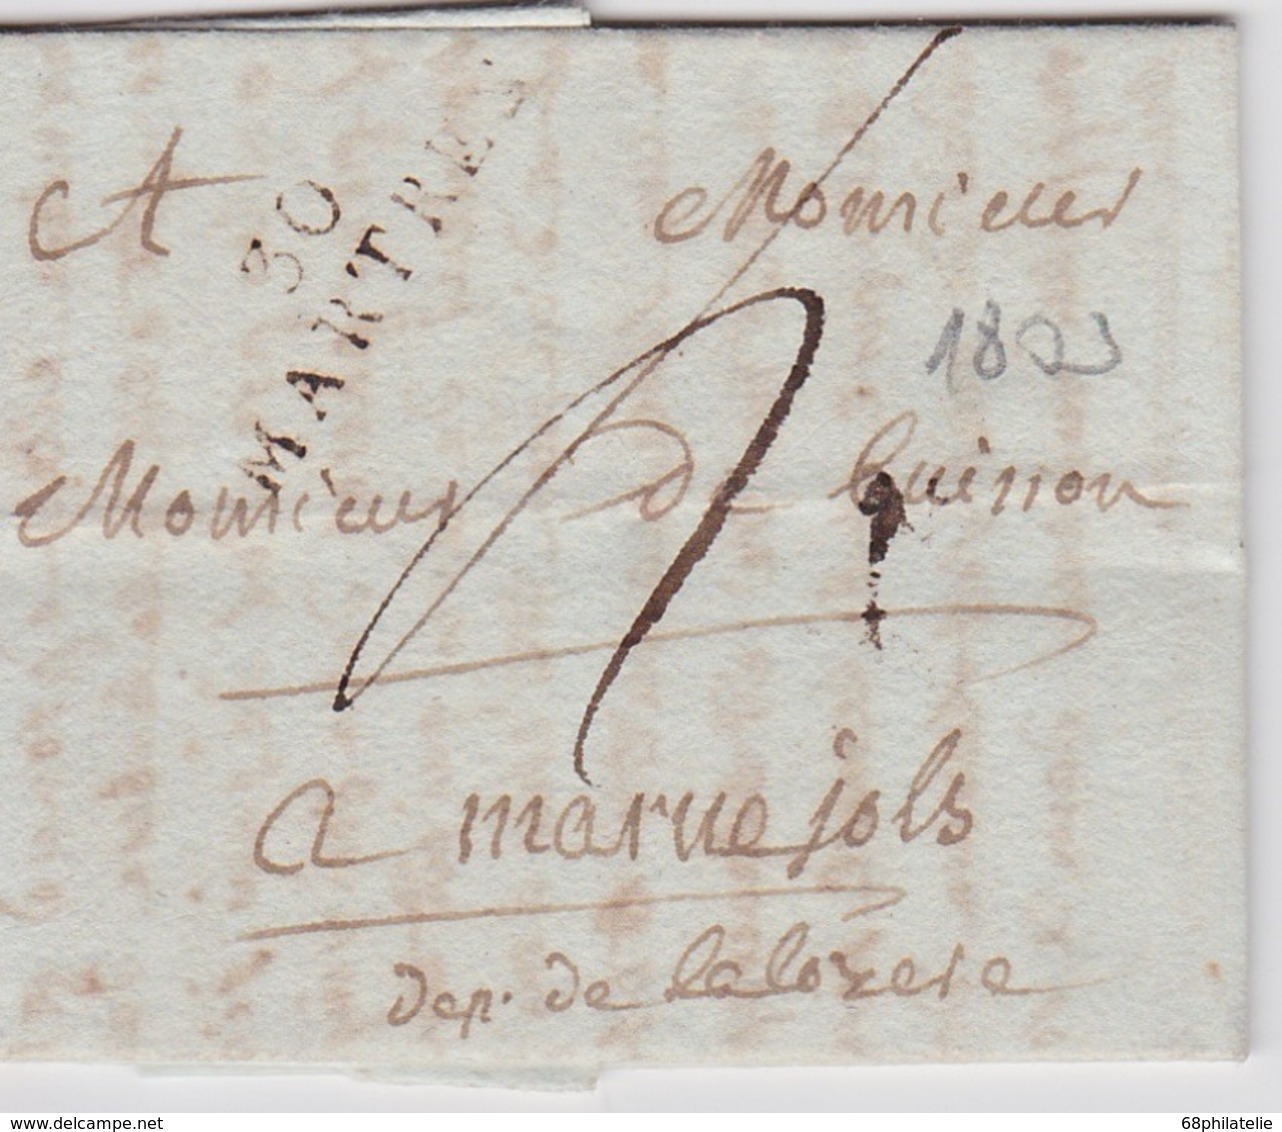 A Monsieur
30
MARTRES
1803
Monsieur de buisson
a maruejols
dep. de lalozere
www.delcampe.net
68philatelie